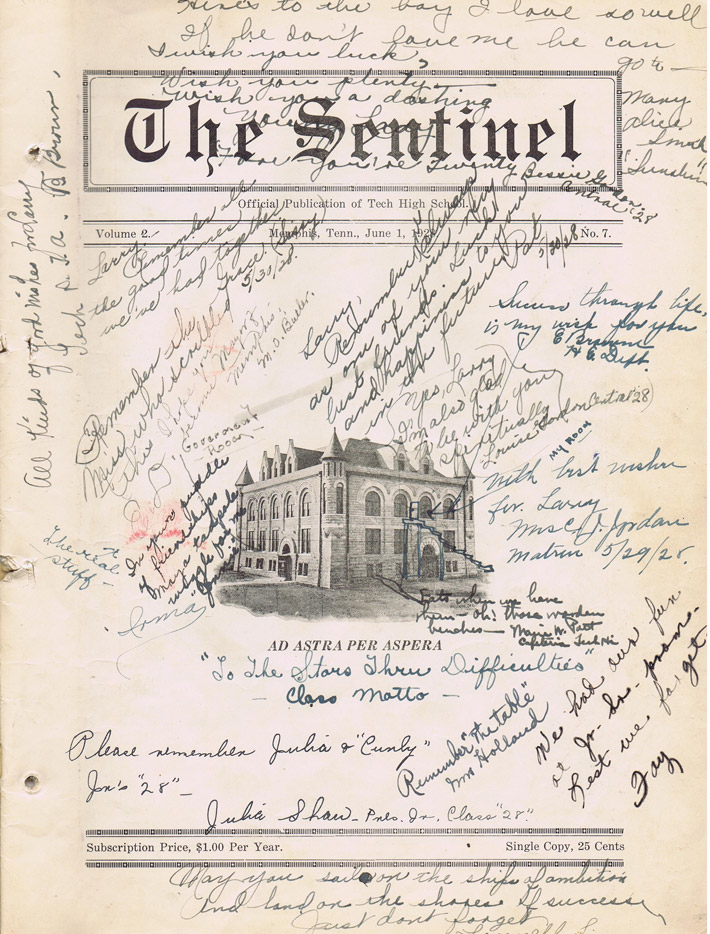 Here's to the boy I love so well
If he don't love me he can
go to —
I wish you luck,
Wish you plenty
Wish you a dashing
you're Twenty
Mary
Alice
"Sunshine"
Bessie Gordon.
Central '28
The Sentinel
Official Publication of Tech High School.
Volume 2.
Memphis, Tenn., June 1, 1928
No. 7.
All kinds of good wishes for Larry
Tech P. T. A. Brown.
Larry,
Remember all
the good times
we've had together
Grace
5/30/28.
Larry,
Remember always
as one of your very
best friends. Luck
and happiness to you
in the future
Pal
5/30/28
Success through life,
is my wish for you
E Browne
H E Dept.
Remember the
Miss who scribbled
this
Memphis
M. D. Butler.
Yes, Larry
I'm also glad
to be with you
perpetually
Louise Gordon (Central '28)
Government
Room
MY ROOM
With best wishes
for Larry
Mrs C. J. Jordan
Matron 5/29/28.
The real
stuff —
In your
of friendships
Irma
Eats when we have
them — Oh! those wooden
benches —
Marie W. Patt
Cafeteria Tech Hi
AD ASTRA PER ASPERA
"To The Stars Thru Difficulties"
— Class Motto —
We had our fun
at Jr-Sr-prom-
Lest we forget
Fay
Remember "the table"
Mrs Holland
Please remember Julia & "Curly"
Jrn's "28" —
Julia Shaw — Pres. Jr. Class "28".
Subscription Price, $1.00 Per Year.
Single Copy, 25 Cents
May you sail on the ships of ambition
And land on the shores of success,
Just don't forget